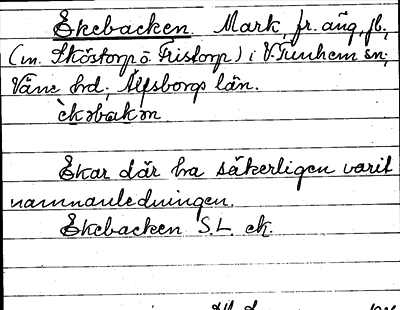 Ekebacken. Mark, fr. äng, jb.,
(m. Sköstorp o. Fristorp) i V. Tunhem sn;
Väne hd. Älfsborgs län.
èkəbakən
Ekar där ha säkerligen varit
namnanledningen.
Ekebacken S.L. ek.